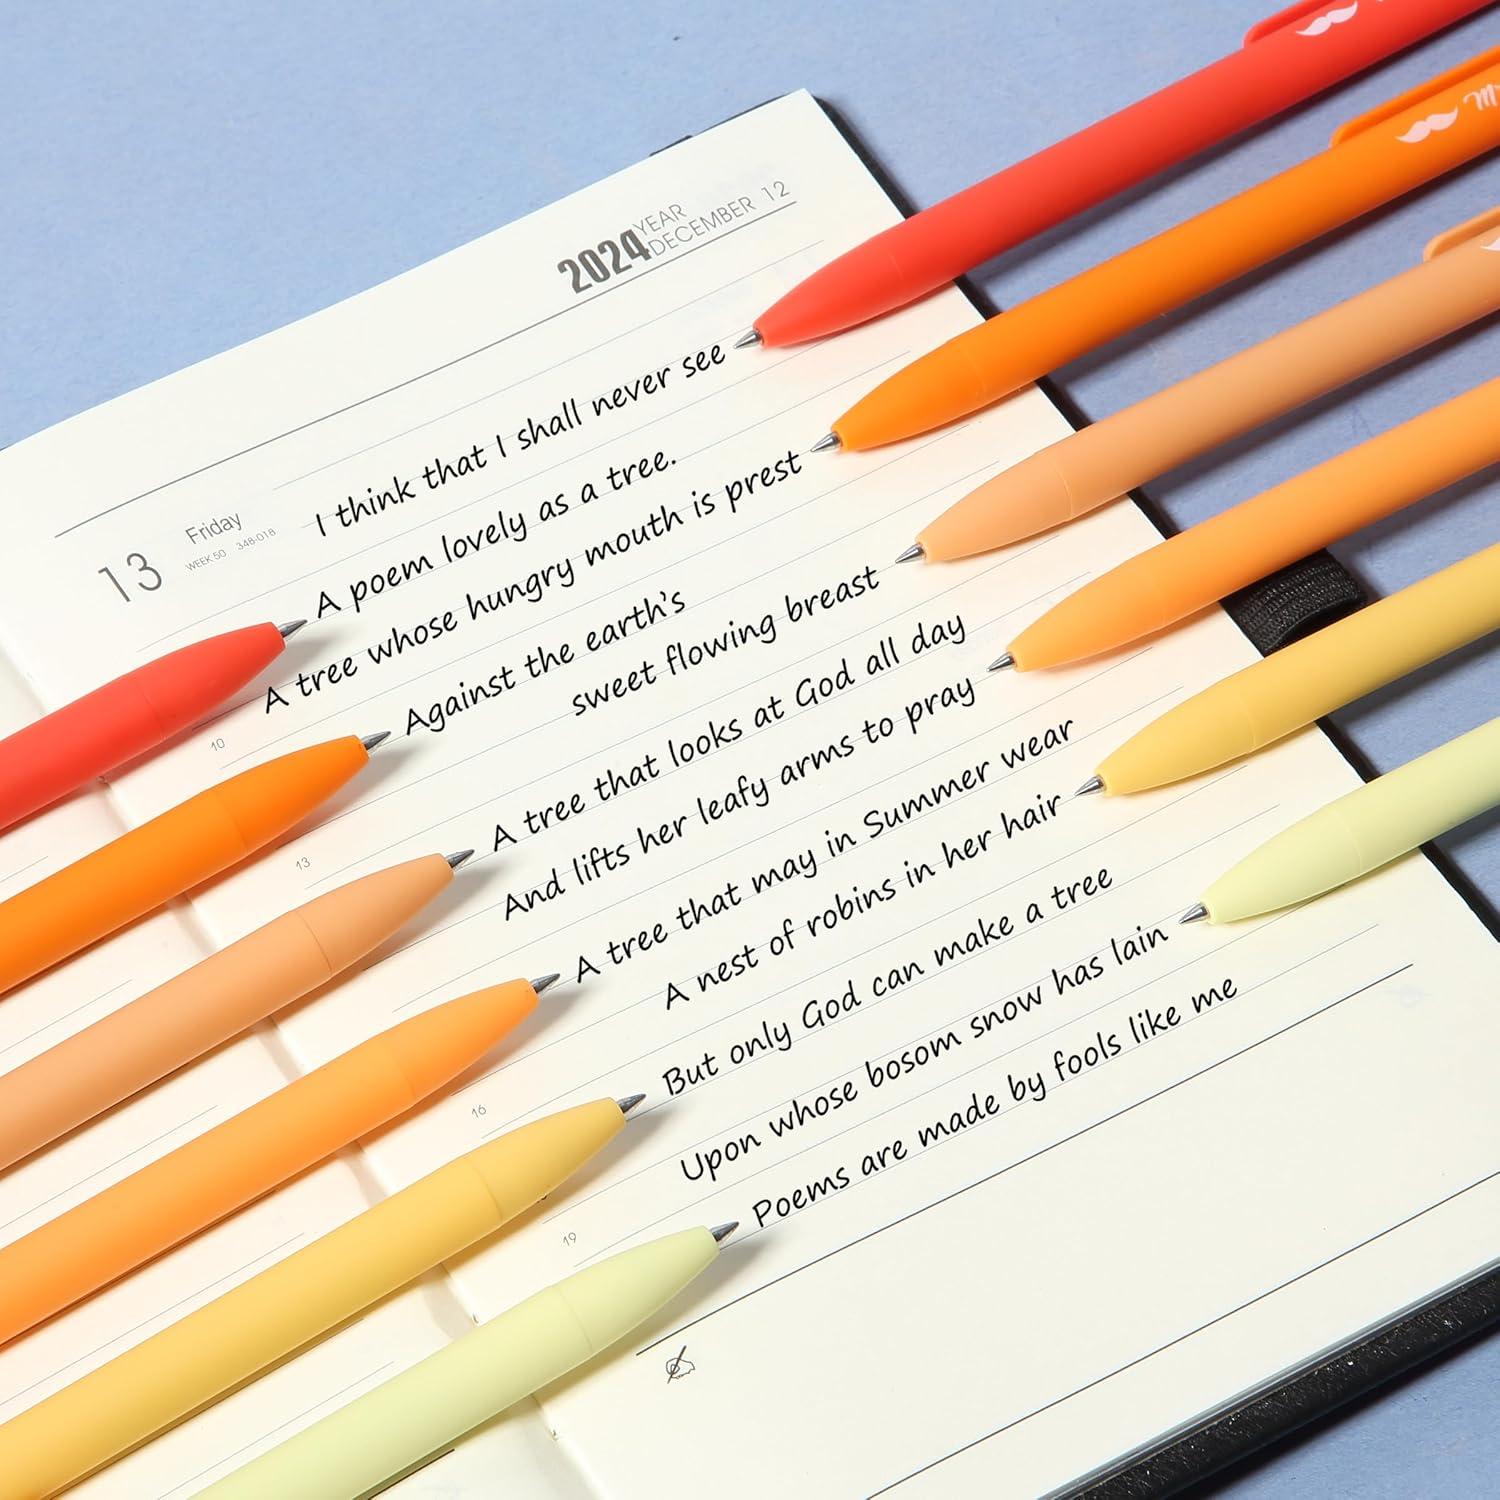 2024 YEAR
DECEMBER 12
13 Friday
WEEK 50 348-018
I think that I shall never see
A poem lovely as a tree.
A tree whose hungry mouth is prest
Against the earth's
sweet flowing breast
A tree that looks at God all day
And lifts her leafy arms to pray
A tree that may in Summer wear
A nest of robins in her hair
But only God can make a tree
Upon whose bosom snow has lain
Poems are made by fools like me
10
13
16
19